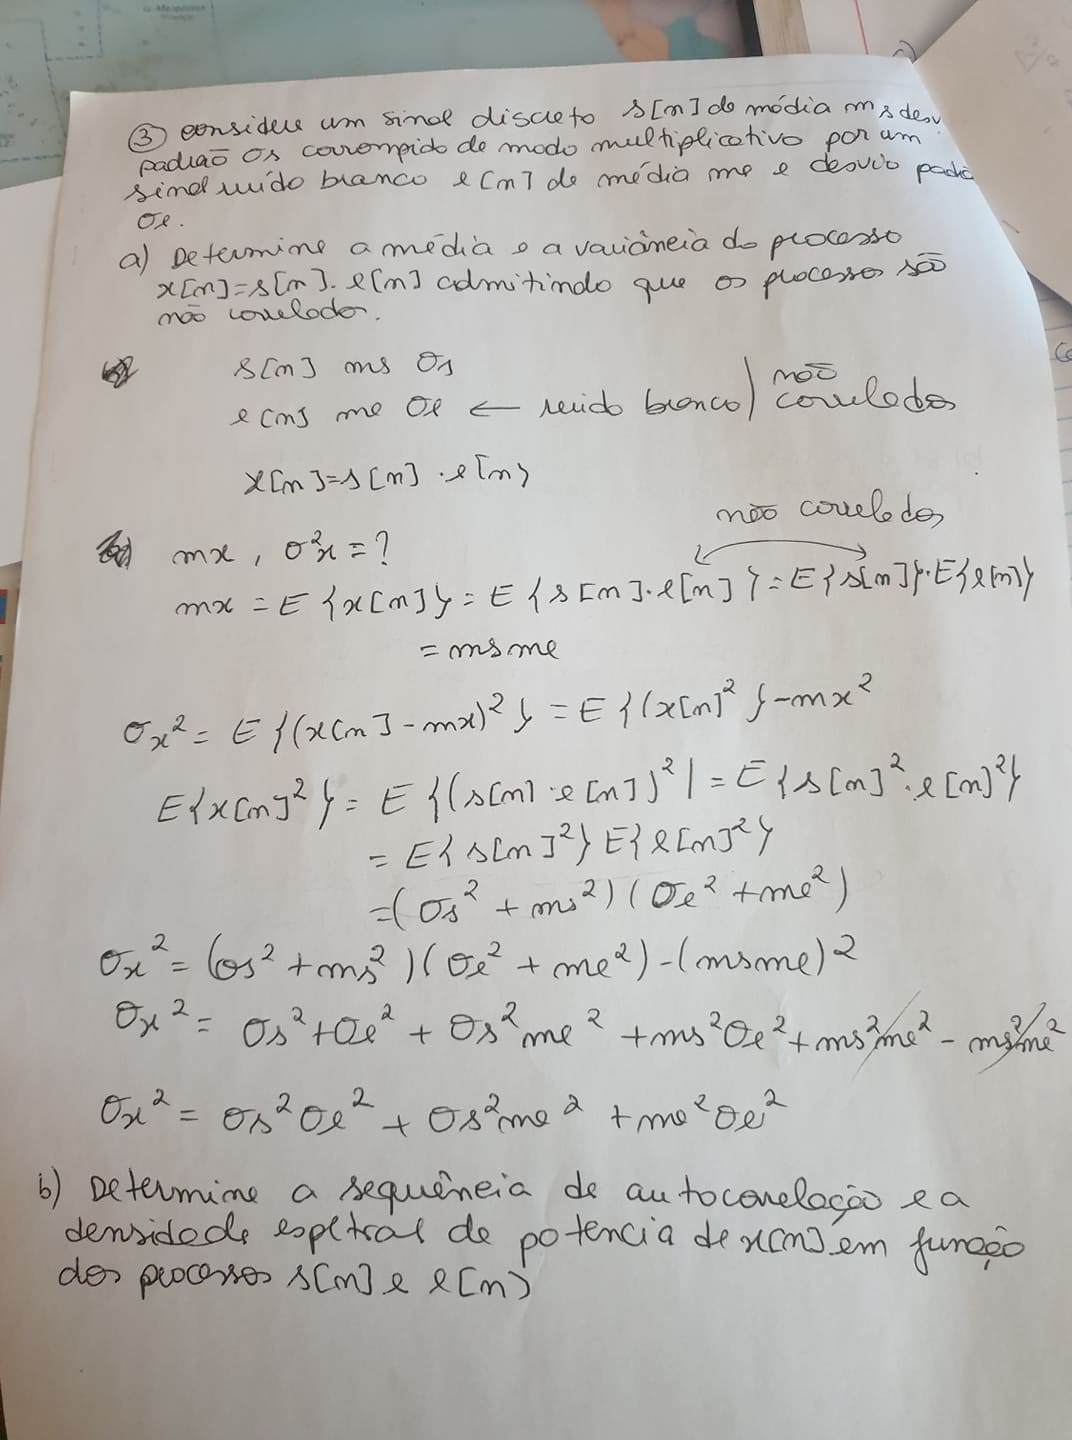 ③ considere um sinal discreto s[n] de média ms desv
padrão σs corrompido de modo multiplicativo por um
sinal ruído branco e[n] de média me e desvio padrã
σe.
a) Determine a média e a variância do processo
x[n]=s[n].e[n] admitindo que os processo são
não correlador.
s[n] ms σs
e[n] me σe ← ruido branco) não correlados
x[n]=s[n].e[n]
não correlados
mx, σ²x=?
mx = E{x[n]} = E{s[n].e[n]} = E{s[n]}.E{e[n]}
= msme
σx² = E{(x[n]-mx)²} = E{(x[n]²}-mx²
E{x[n]²} = E{(s[n].e[n])²| = E{s[n]².e[n]²}
= E{s[n]²}E{e[n]²}
=(σs²+ms²)(σe²+me²)
σx² = (σs²+ms²)(σe²+me²)-(msme)2
σx² = σs²+σe² + σs²me² +ms²σe²+ms²me² - ms²me²
σx² = σs²σe² + σs²me² +me²σe²
b) Determine a sequência de autocorrelação e a
densidade espetral de potência de x[n] em função
dos processos s[n] e e[n]